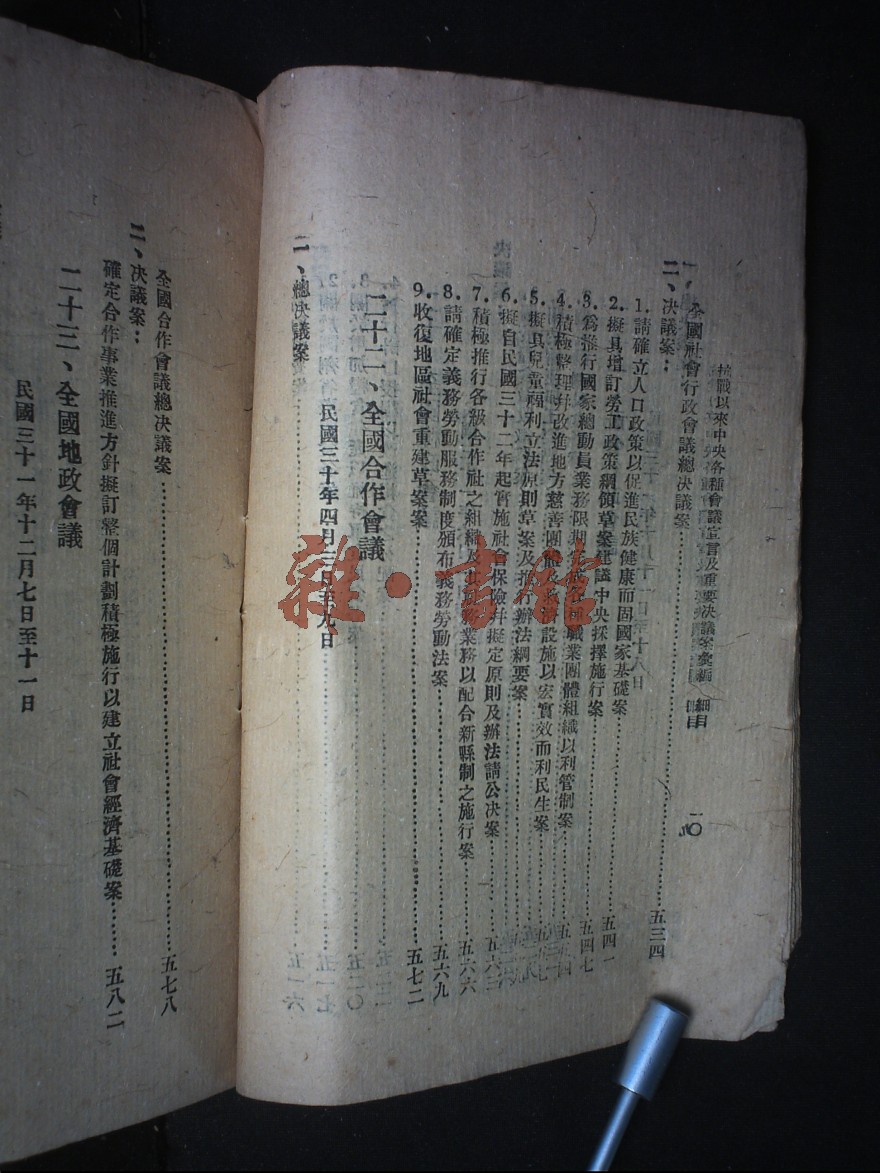 抗戰以來中央各種會議宣言及重要決議案彙編　細目
一〇
一、全國社會行政會議總决議案……五三四
二、决議案：
1.請確立人口政策以促進民族健康而固國家基礎案……五四一
2.擬具增訂勞工政策綱領草案建議中央採擇施行案……五四七
3.爲推行國家總動員業務限期完成各種職業團體組織以利管制案
4.積極整理幷改進地方慈善團體及救濟設施以宏實效而利民生案
5.擬具兒童福利立法原則草案及推行辦法綱要案
6.擬自民國三十二年起實施社會保險幷擬定原則及辦法請公决案……五六三
7.積極推行各級合作社之組織及其業務以配合新縣制之施行案……五六六
8.請確定義務勞動服務制度頒布義務勞動法案……五六九
9.收復地區社會重建草案案……五七二
二十二、全國合作會議
民國三十年四月二日至九日
一、總决議案
全國合作會議總决議案……五七八
二、决議案：
確定合作事業推進方針擬訂整個計劃積極施行以建立社會經濟基礎案……五八二
二十三、全國地政會議
民國三十一年十二月七日至十一日
雜·書館